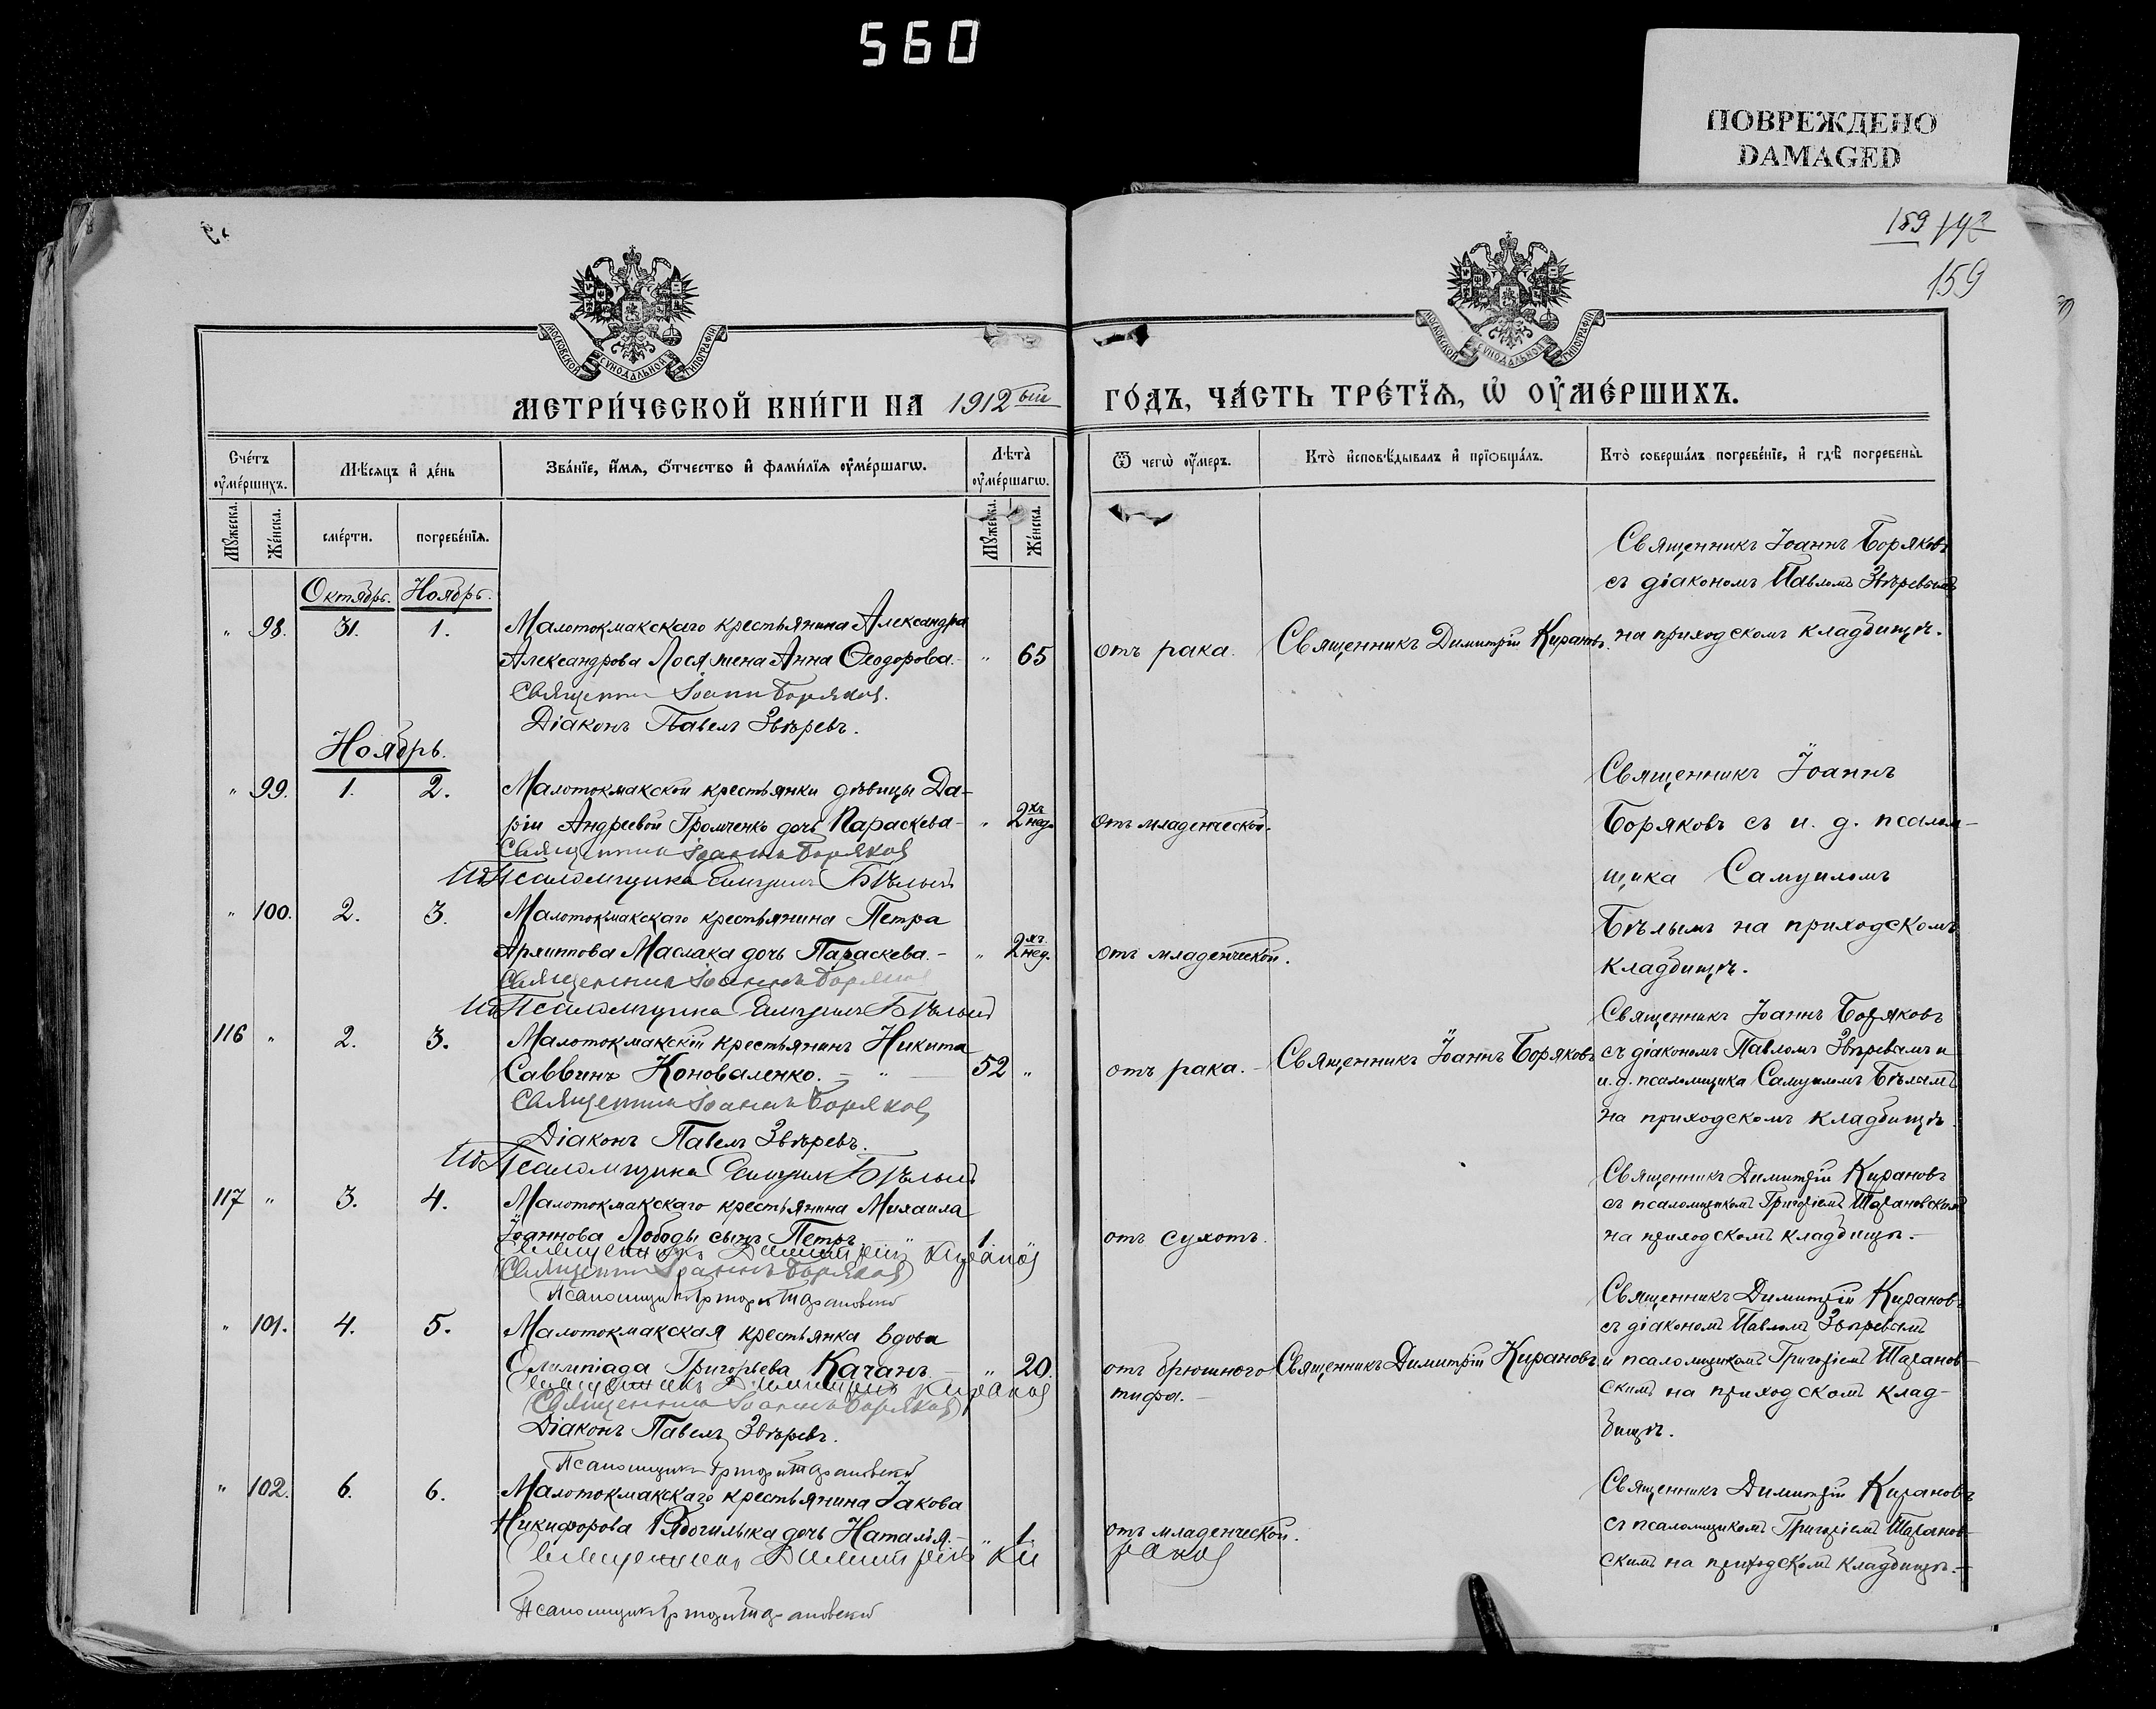 560
ПОВРЕЖДЕНО
DAMAGED
189 142
159
МОСКОВСКОЙ СѴНОДАЛЬНОЙ ТИПОГРАФІИ
МОСКОВСКОЙ СѴНОДАЛЬНОЙ ТИПОГРАФІИ
МЕТРИ́ЧЕСКОЙ КНИ́ГИ НА 1912ый ГО́ДЪ, ЧА́СТЬ ТРЕ́ТЇѦ, Ѡ҆ ОУ҆МЕ́РШИХЪ.
Сче́тъ оу҆ме́ршихъ.
Мѣ́сяцъ и҆ де́нь
Зва́нїе, и҆́мѧ, ѻ҆́тчество и҆ фами́лїѧ оу҆ме́ршагѡ.
Лѣта̀ оу҆ме́ршагѡ.
Ѿ чегѡ̀ оу҆́меръ.
Кто̀ и҆сповѣ́дывалъ и҆ прїѻбща́лъ.
Кто̀ соверша́лъ погребе́нїе, и҆ гдѣ̀ погребены̀.
Мꙋ́жеска.
Же́нска.
сме́рти.
погребе́нїѧ.
Мꙋ́жеска.
Же́нска.
Октябрь. Ноябрь.
" 98. 31. 1. Малотокмакскаго крестьянина Александра
Александрова Лося жена Анна Ѳеодорова.- " 65
Священникъ Іоаннъ Боряковъ.
Діаконъ Павелъ Звѣревъ.
отъ рака.
Священникъ Димитрій Кирановъ.
Священникъ Іоаннъ Боряковъ
съ діакономъ Павломъ Звѣревымъ
на приходскомъ кладбищѣ.
Ноябрь.
" 99. 1. 2. Малотокмакской крестьянки дѣвицы Да-
ріи Андреевой Громченко дочь Параскева- " 2хъ нед.
Священникъ Іоаннъ Боряковъ
Ид Псаломщика Самуилъ Бѣлый
отъ младенческой.
" 100. 2. 3. Малотокмакскаго крестьянина Петра
Архиппова Маслака дочь Параскева.- " 2хъ нед.
Священникъ Іоаннъ Боряковъ
Ид Псаломщика Самуилъ Бѣлый
отъ младенческой.
Священникъ Іоаннъ
Боряковъ съ и. д. псалом-
щика Самуиломъ
Бѣлымъ на приходскомъ
кладбищѣ.
116 " 2. 3. Малотокмакскій крестьянинъ Никита
Саввинъ Коноваленко. - " - 52 "
Священникъ Іоаннъ Боряковъ
Діаконъ Павелъ Звѣревъ.
Ид Псаломщика Самуилъ Бѣлый
отъ рака. -
Священникъ Іоаннъ Боряковъ
Священникъ Іоаннъ Боряковъ
съ діакономъ Павломъ Звѣревымъ и
и. д. псаломщика Самуиломъ Бѣлымъ
на приходскомъ кладбищѣ
117 " 3. 4. Малотокмакскаго крестьянина Михаила
Іоаннова Лободы сынъ Петръ " 1.
Священникъ Димитрій Кирановъ
Священникъ Іоаннъ Боряковъ
Псаломщикъ Григорій Тарановскій
отъ сухотъ.
Священникъ Димитрій Кирановъ
съ псаломщикомъ Григоріемъ Тарановскимъ
на приходскомъ кладбищѣ.-
" 101. 4. 5. Малотокмакская крестьянка вдова
Олимпіада Григорьева Качанъ. " 20.
Священникъ Димитрій Кирановъ
Священникъ Іоаннъ Боряковъ
Діаконъ Павелъ Звѣревъ.
Псаломщикъ Григорій Тарановскій
отъ брюшного
тифа.-
Священникъ Димитрій Кирановъ
Священникъ Димитрій Кирановъ
съ діакономъ Павломъ Звѣревымъ
и псаломщикомъ Григоріемъ Таранов-
скимъ на приходскомъ клад-
бищѣ.
" 102. 6. 6. Малотокмакскаго крестьянина Іакова
Никифорова дочь Наталья.- " 1.
Священникъ Димитрій Кирановъ
Псаломщикъ Григорій Тарановскій
отъ младенческой.
Священникъ Димитрій Кирановъ
съ псаломщикомъ Григоріемъ Таранов-
скимъ на приходскомъ кладбищѣ.-